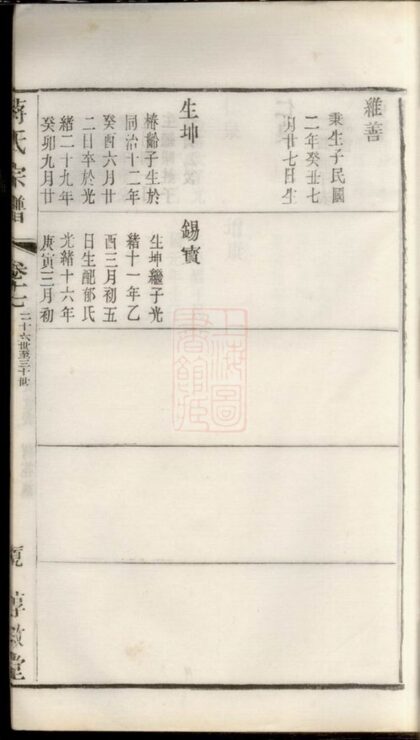 維善
秉生子民國
二年癸丑七
月廿七日生
生坤
椿齡子生於
同治十二年
癸酉六月廿
二日卒於光
緒二十九年
癸卯九月廿
錫寶
生坤繼子光
緒十一年乙
酉三月初五
日生配郁氏
光緒十六年
庚寅三月初
蔣氏宗譜
卷十七
二十六世至三十世
上海圖書館藏